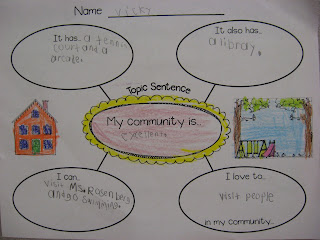 Name Vicky
It has... a tennis
court and a
arcade.
It also has...
a library.
Topic Sentence
My community is...
excellent.
I can...
visit Ms. Rosenberg
and go swimming.
I love to...
visit people
in my community...